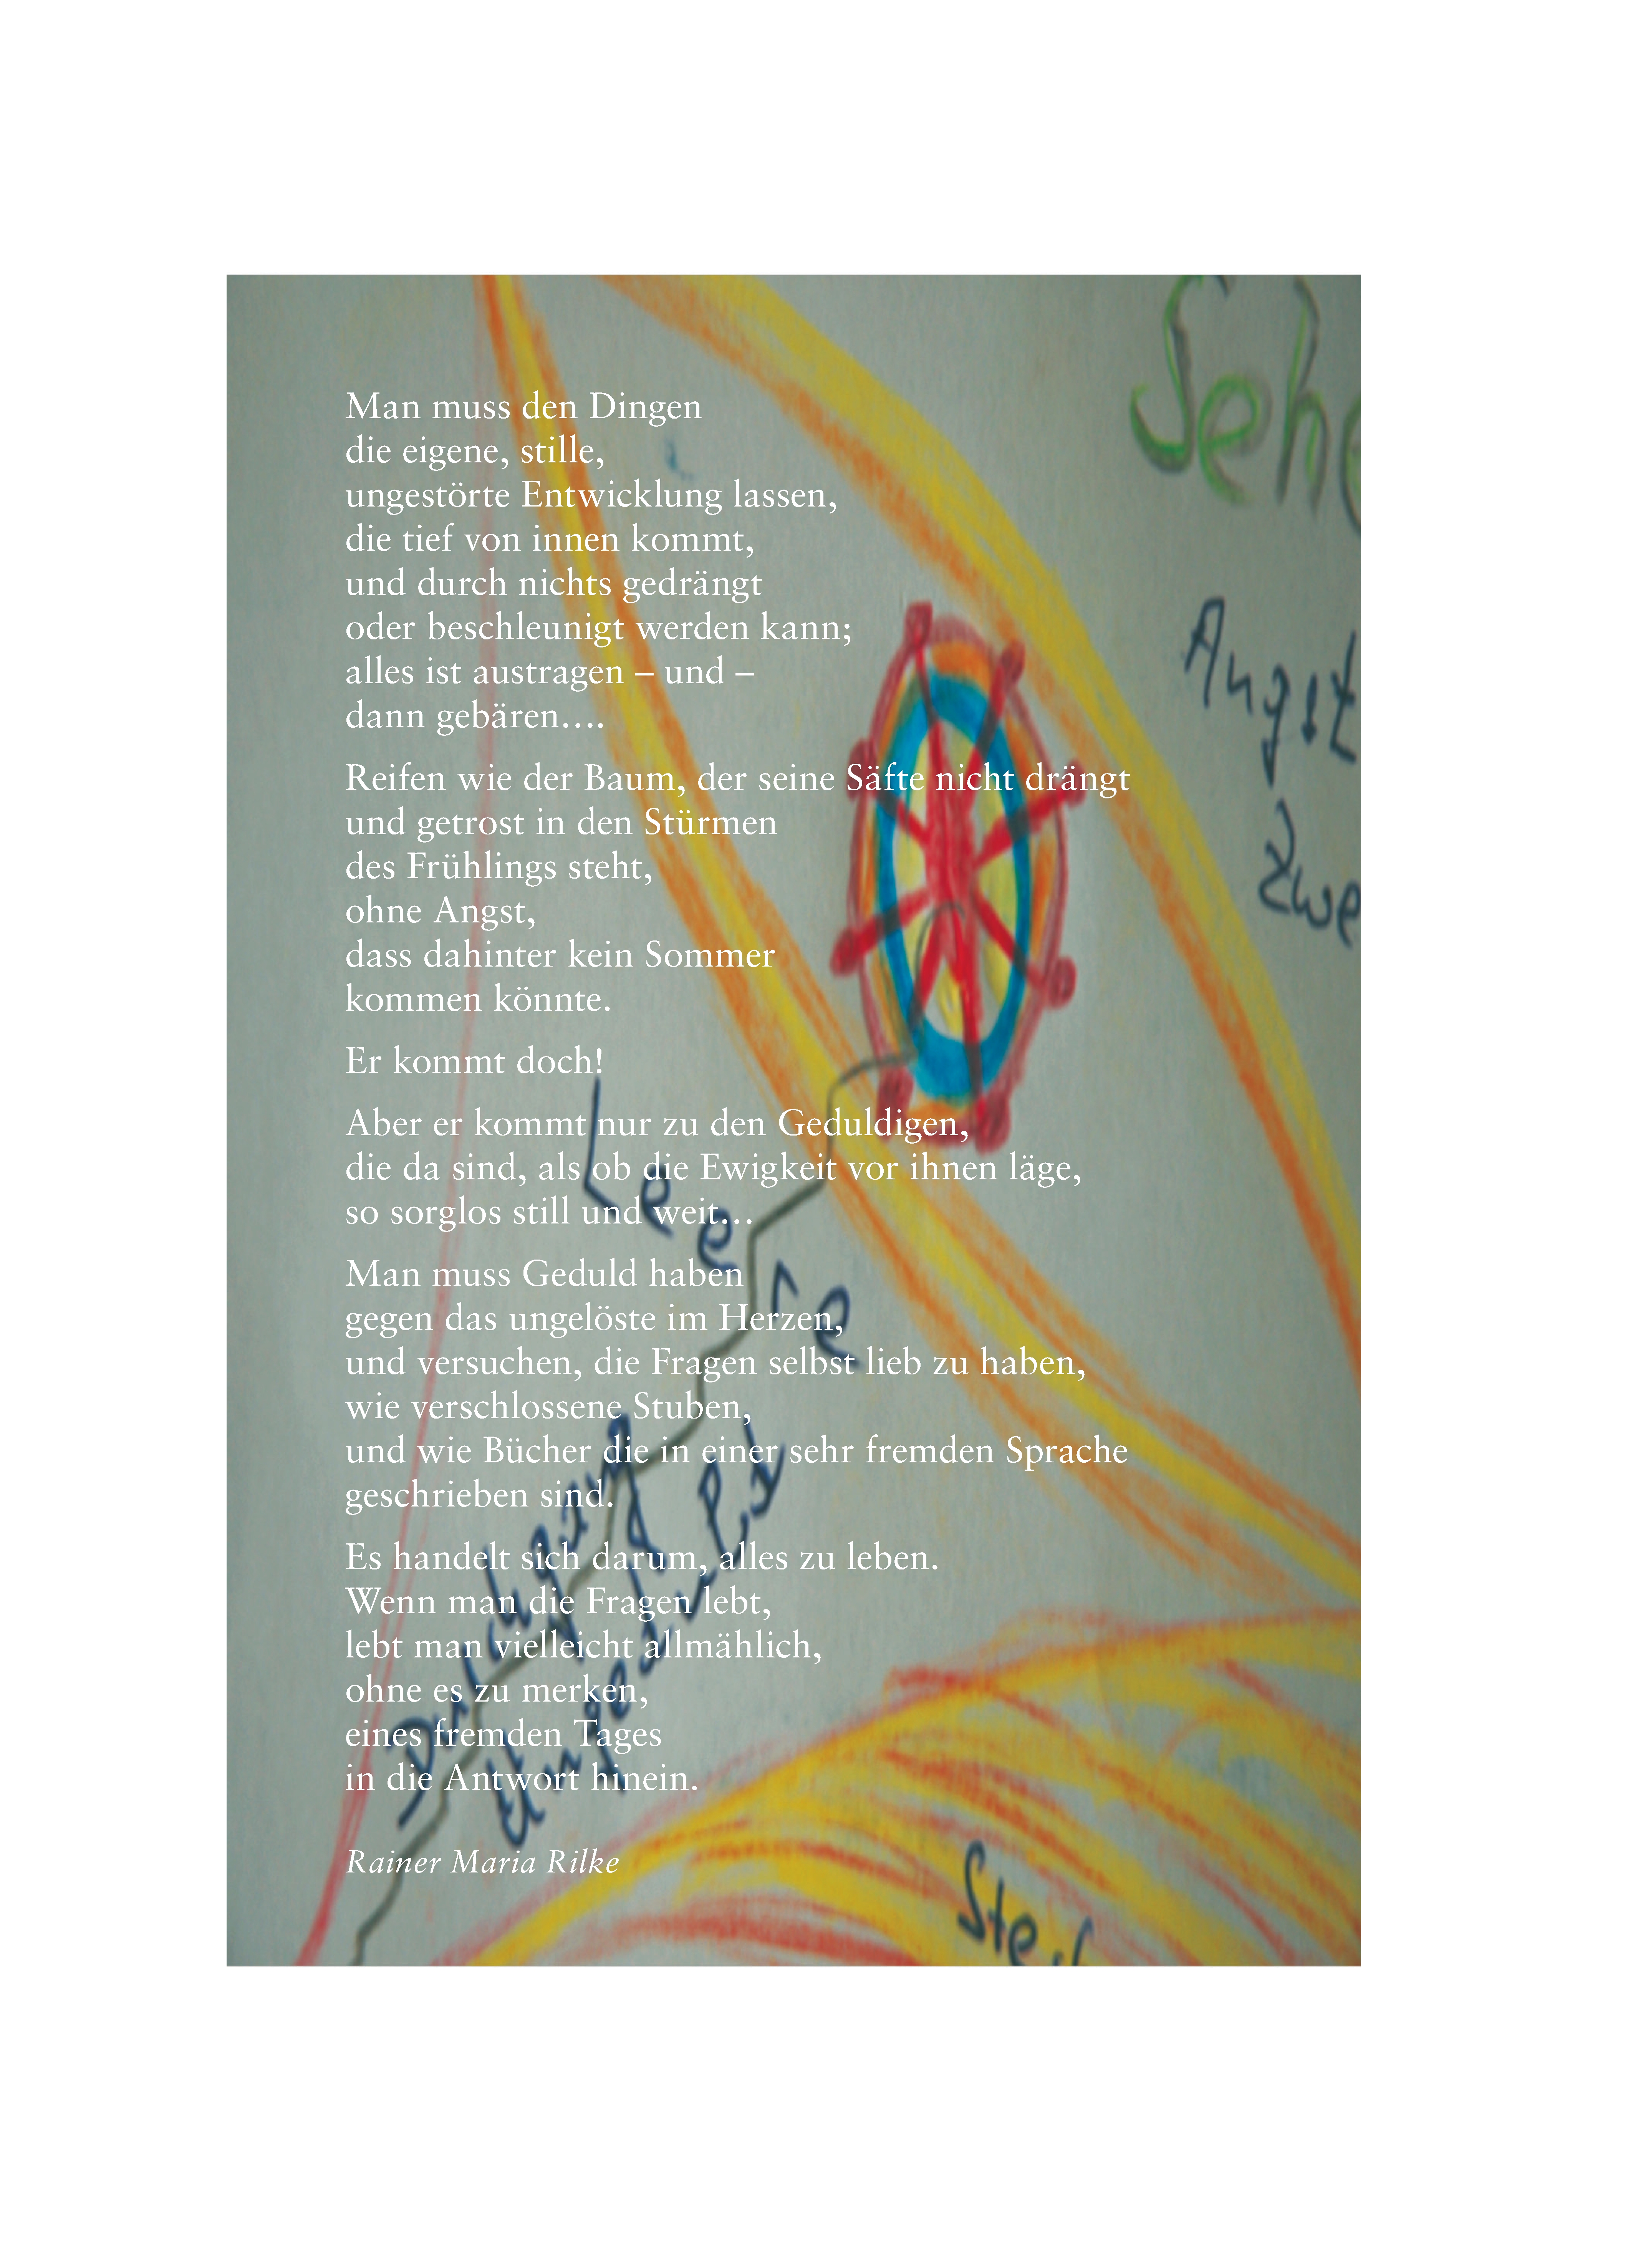 Man muss den Dingen
die eigene, stille,
ungestörte Entwicklung lassen,
die tief von innen kommt,
und durch nichts gedrängt
oder beschleunigt werden kann;
alles ist austragen – und –
dann gebären....
Reifen wie der Baum, der seine Säfte nicht drängt
und getrost in den Stürmen
des Frühlings steht,
ohne Angst,
dass dahinter kein Sommer
kommen könnte.
Er kommt doch!
Aber er kommt nur zu den Geduldigen,
die da sind, als ob die Ewigkeit vor ihnen läge,
so sorglos still und weit...
Man muss Geduld haben
gegen das ungelöste im Herzen,
und versuchen, die Fragen selbst lieb zu haben,
wie verschlossene Stuben,
und wie Bücher die in einer sehr fremden Sprache
geschrieben sind.
Es handelt sich darum, alles zu leben.
Wenn man die Fragen lebt,
lebt man vielleicht allmählich,
ohne es zu merken,
eines fremden Tages
in die Antwort hinein.
Rainer Maria Rilke
Sehe
Angst
Zwe
Leere
Durchgang
Ungeduld